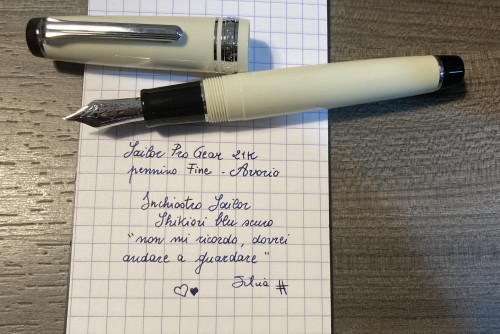 Sailor Pro Gear 21K
pennino Fine - Avorio
Inchiostro Sailor
Shikiori blu scuro
"non mi ricordo, dovrei
andare a guardare"
Silvia #